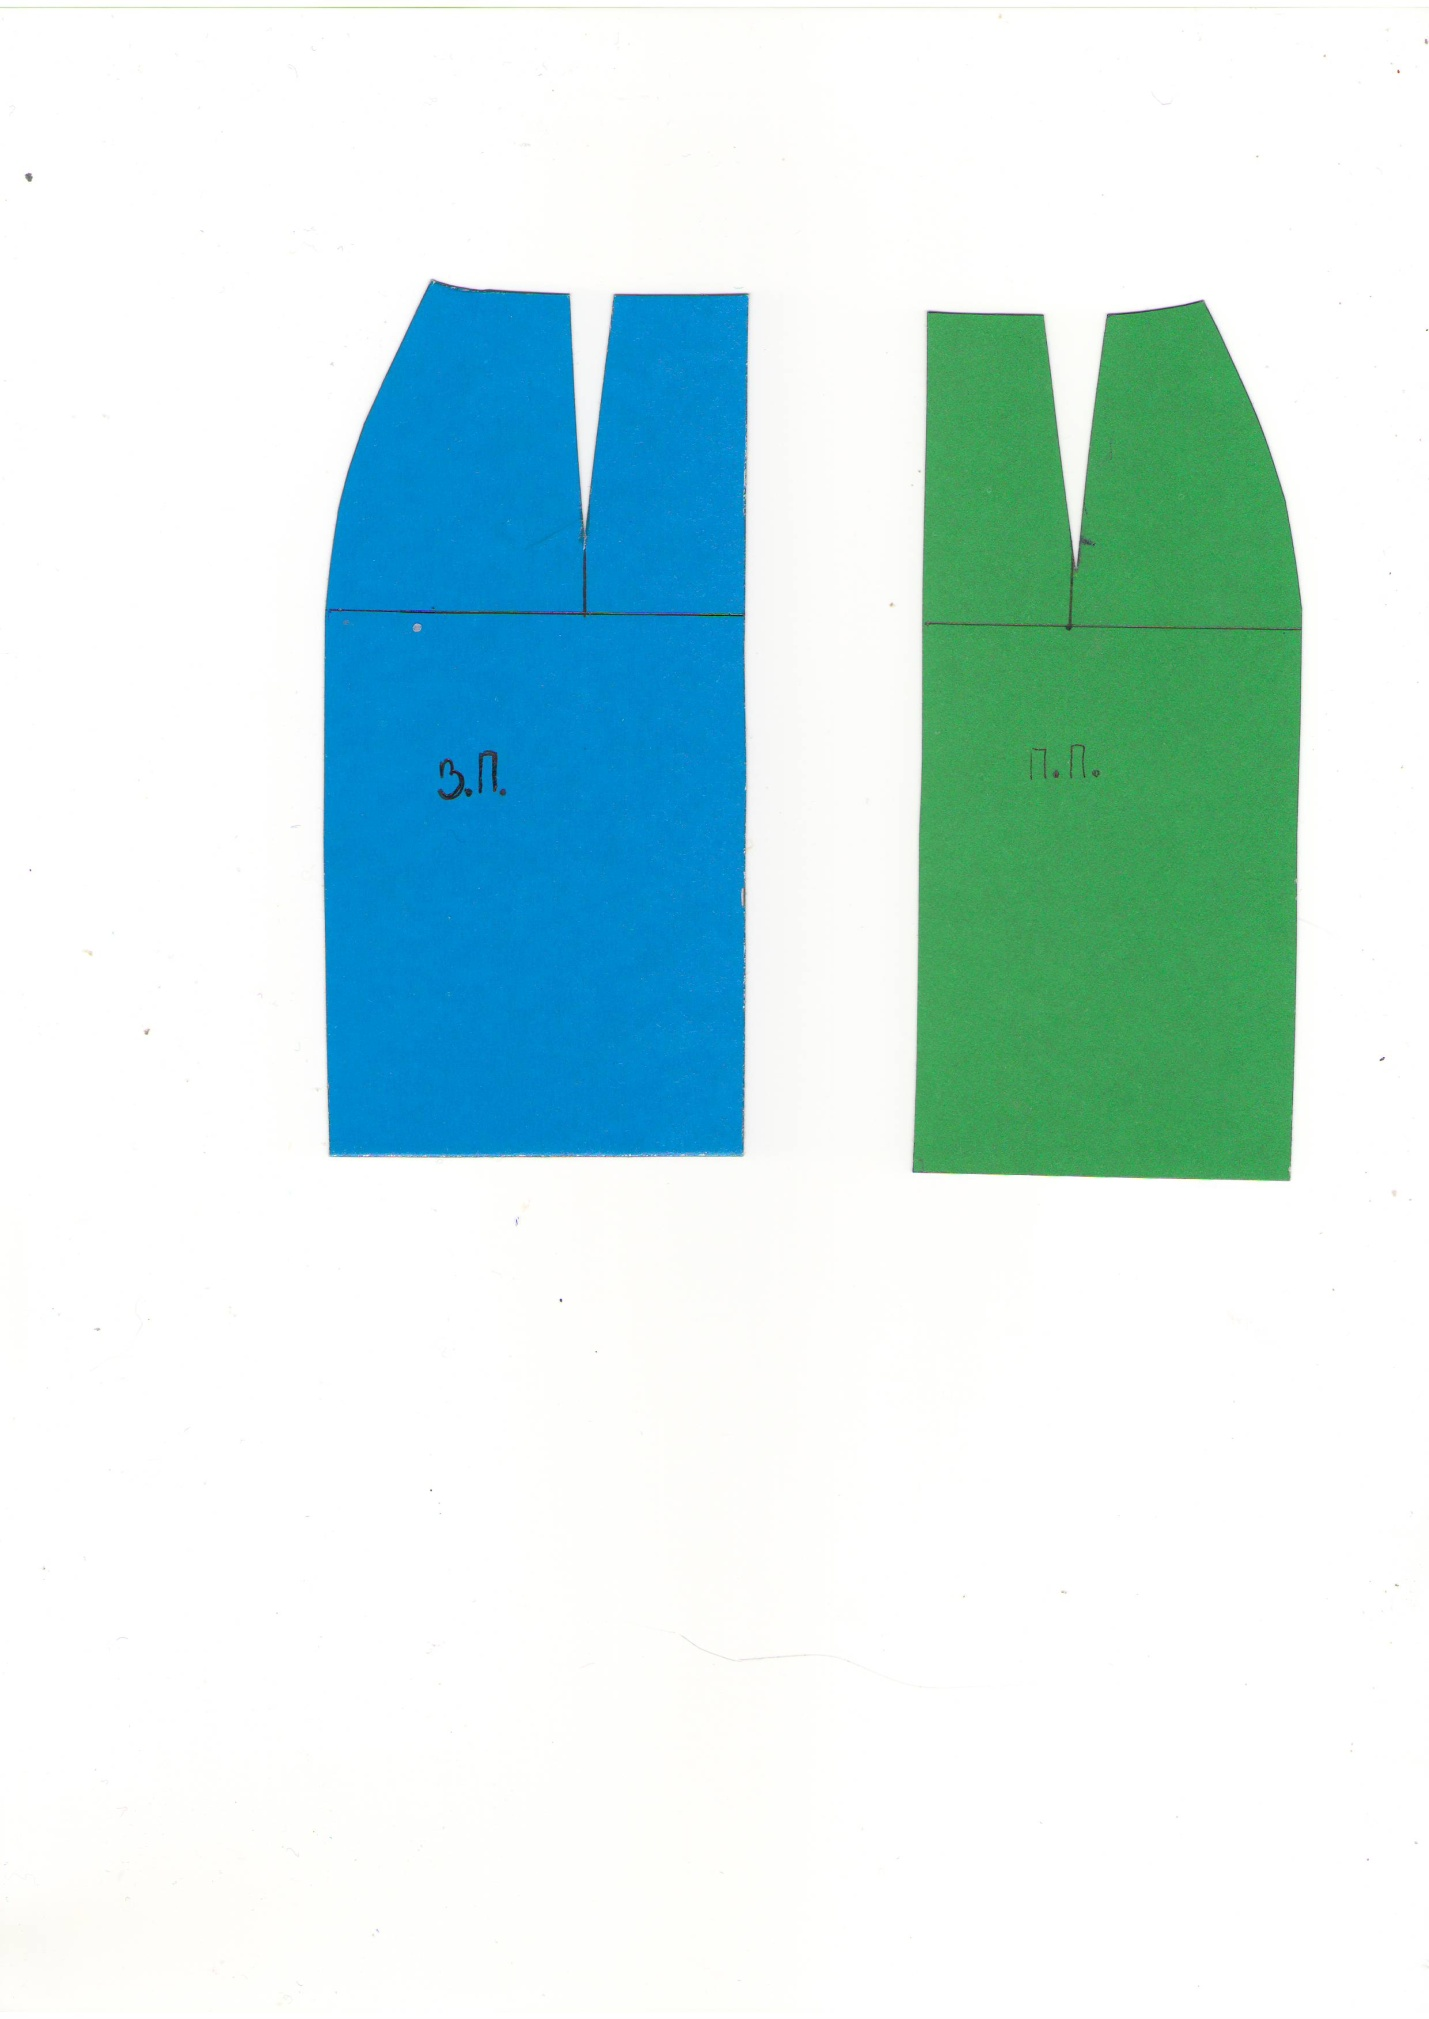 З.П.
П.П.